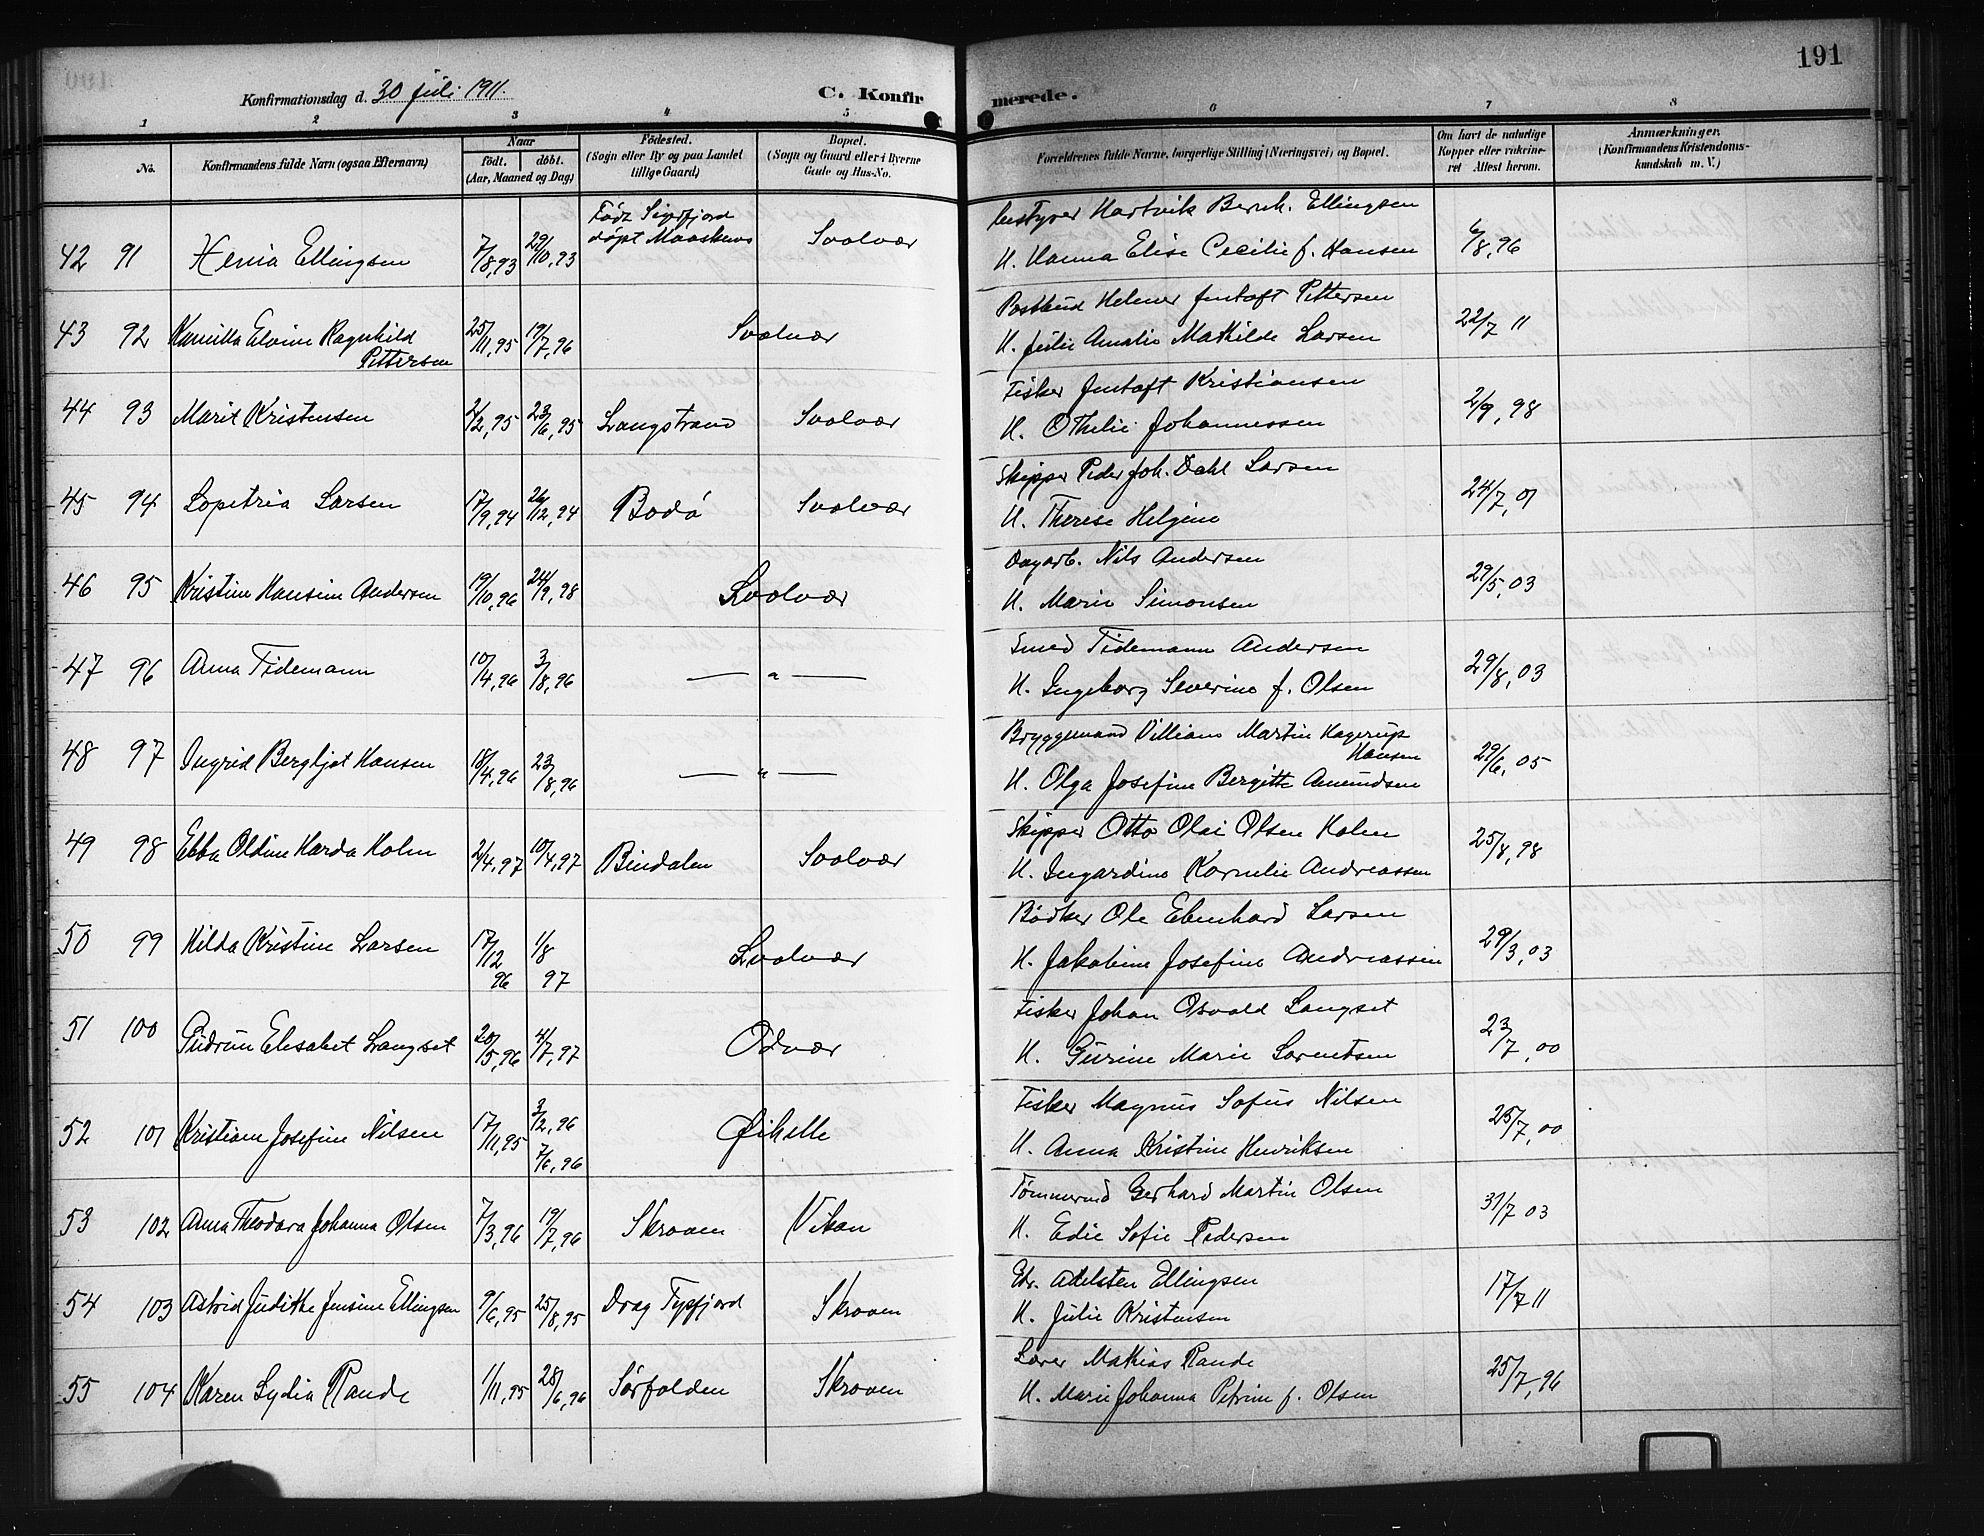 191
Konfirmationsdag d. 30 juli 1911.
C. Konfirmerede.
1 2 3 4 5 6 7 8
No.
Konfirmandens fulde Navn (ogsaa Efternavn)
Naar
født. døbt.
(Aar, Maaned og Dag)
Fødested.
(Sogn eller By og paa Landet
tillige Gaard)
Bopæl.
(Sogn og Gaard eller i Byerne
Gade og Hus-No.
Forældrenes fulde Navne, borgerlige Stilling (Næringsvei) og Bopæl.
Om havt de naturlige
Kopper eller vakcine-
ret Attest herom.
Anmærkninger.
(Konfirmandens Kristendoms-
kundskab m. V.)
Født Sigerfjord bestyrer Hartvik Bernh. Ellingsen
42 91 Xenia Ellingsen 7/8,93 29/10,93 døpt Svolvær H. Hanna Elise Cecilie f. Hansen 6/8,96
Postbud Helmer Jentoft Pettersen
43 92 Kamilla Elvine Ragnhild 25/11,95 19/7,96 Svolvær H. Julie Amalie Mathilde Larsen 22/7 11
Pettersen
Fisker Jentoft Kristiansen
44 93 Marit Kristensen 2/2,95 23/6,95 Langstrand Svolvær H. Othelie Johannessen 2/9,98
Skipper Peder Joh. Dahl Larsen
45 94 Lopetria Larsen 17/9,94 26/12,94 Bodø Svolvær H. Therese Helgine 24/7,01
Dagarb. Nils Andersen
46 95 Kristine Hansine Andersen 19/10,96 24/9,98 Svolvær H. Marie Simonsen 29/5,03
Smed Tidemann Andersen
47 96 Anna Tidemann 10/4,96 3/8,96 — " — H. Ingeborg Severine f. Olsen 29/8,03
Bryggemand Villiam Martin Hagerup
Hansen
48 97 Ingrid Bergljot Hansen 18/4,96 23/8,96 — " — H. Olga Josefine Bergitte Amundsen 29/6,05
Skipper Otto Olai Olsen Holm
49 98 Ebba Oldine Harda Holm 2/4,97 10/4,97 Bindalen Svolvær H. Ingardine Kornelie Andreassen 25/8,98
Bødker Ole Ebenhard Larsen
50 99 Hilda Kristine Larsen 17/12 96 1/8 97 Svolvær H. Jakobine Josefine Andreassen 29/3,03
Fisker Johan Osvald Langset
51 100 Gudrun Elesabet Langset 20/5,96 4/7,97 Odvær H. Gurine Marie Lorentsen 23/7,00
Fisker Magnus Sofus Nilsen
52 101 Kristiane Josefine Nilsen 17/11,95 3/2,96 7/6,96 Øihelle H. Anna Kristine Henriksen 25/7,00
Tømmermd Gerhard Martin Olsen
53 102 Anna Theodora Johanna Olsen 7/3,96 19/7,96 Skroven Vikan H. Edie Sofie Pedersen 31/7 03
Edr. Adelsten Ellingsen
54 103 Astrid Judithe Jensine Ellingsen 9/6,95 25/8,95 Drag Tysfjord Skroven H. Julie Kristensen 17/7 11
Lærer Mathias Rande
55 104 Karen Lydia Rande 1/11,95 28/6,96 Sørfolden Skroven H. Marie Johanna Petrine f. Olsen 25/7,96